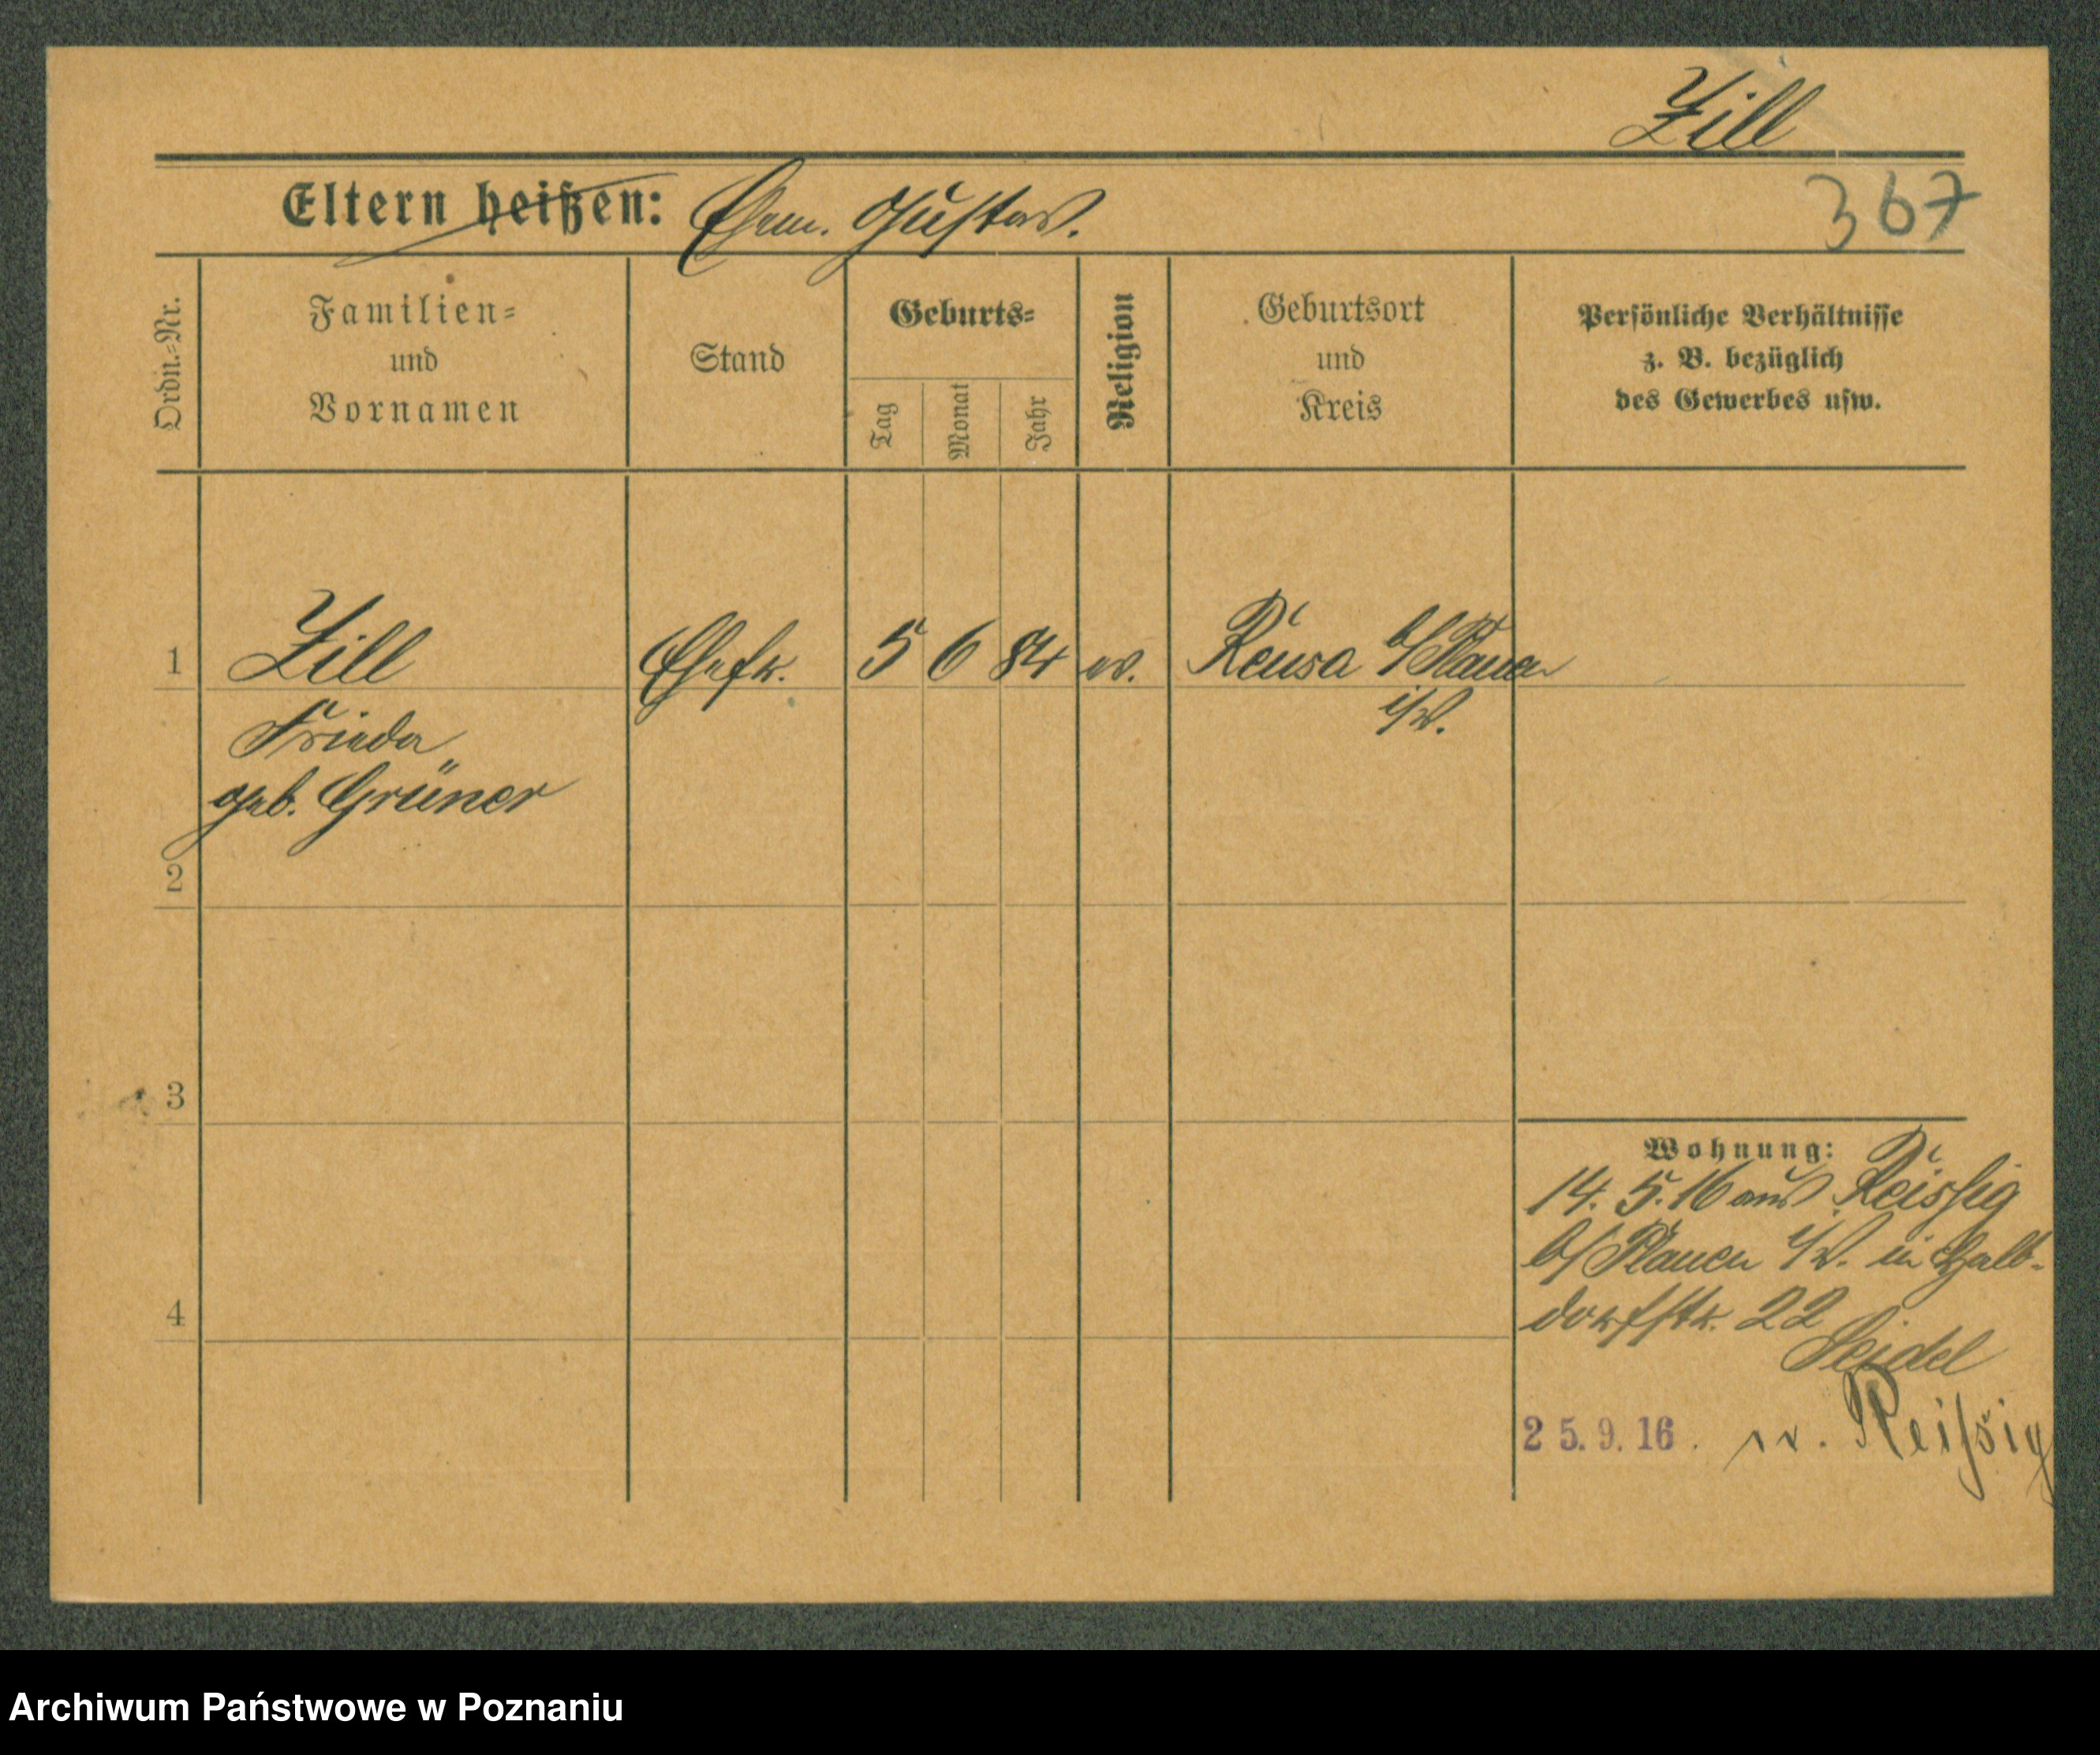 Zill
Eltern heißen: Ehem. Gustav.
367
Ordn.-Nr.
Familien-
und
Vornamen
Stand
Geburts-
Tag
Monat
Jahr
Religion
Geburtsort
und
Kreis
Persönliche Verhältnisse
z. B. bezüglich
des Gewerbes usw.
1 Zill Ehefr. 5 6 84 ev. Reusa b/Plauen
i/V.
Frieda
geb. Grüner
2
3
4
Wohnung:
14. 5. 16 aus Reissig
b/Plauen i/V. in
dorfstr. 22
Seidel
25.9.16. n. Reißig
Archiwum Państwowe w Poznaniu